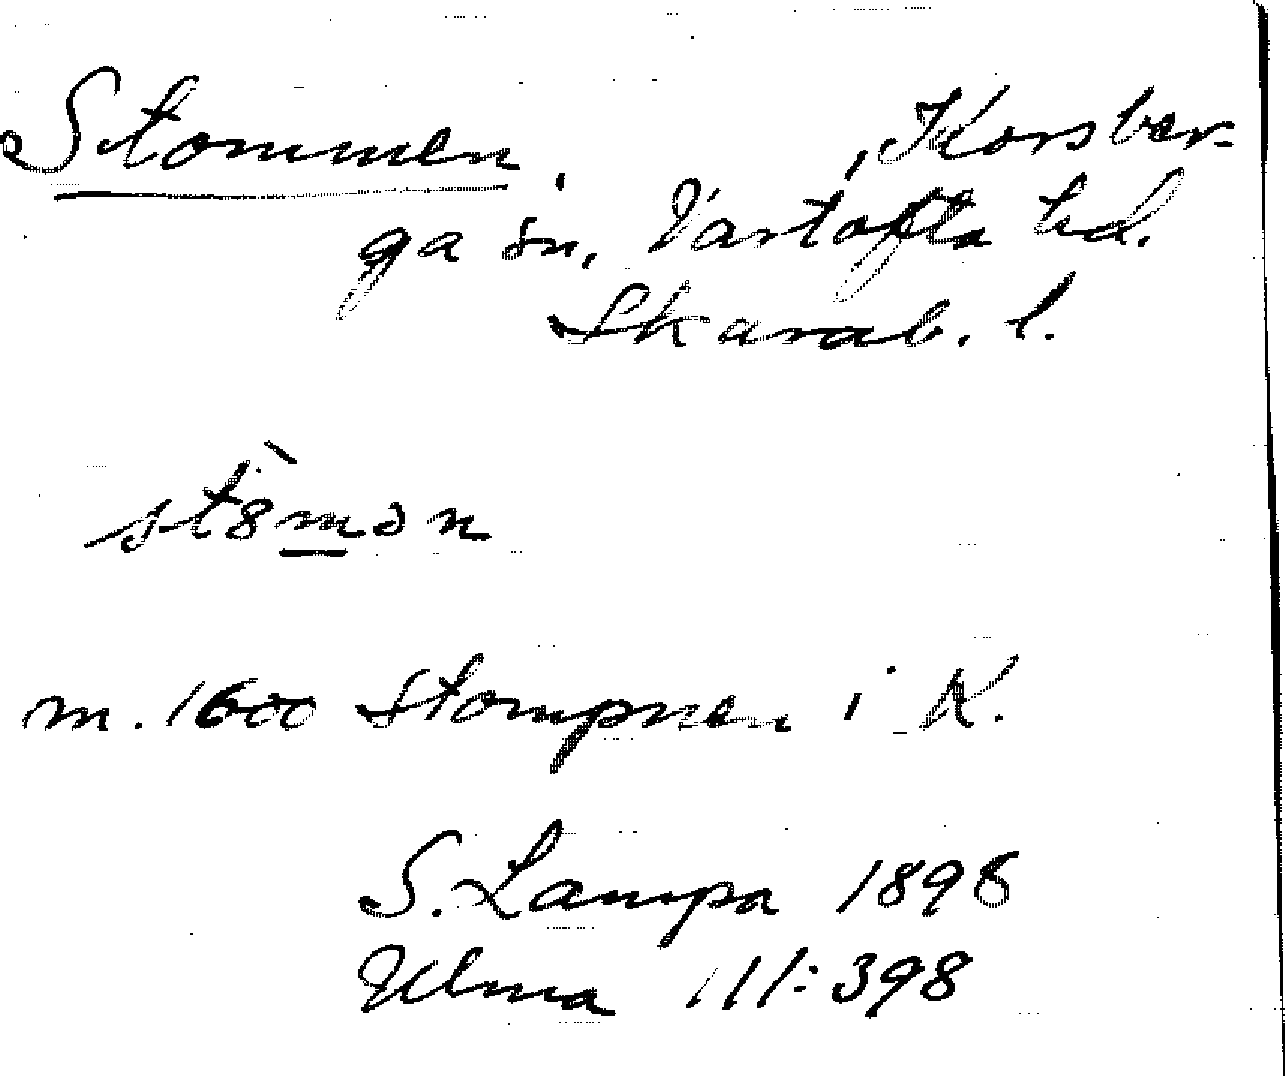 Stommen , Korsber-
ga sn, Vartofta hd.
Skarab. l.
st8̀mən
m. 1600 Stompnen i K.
S. Lampa 1898
Ulma 111:398